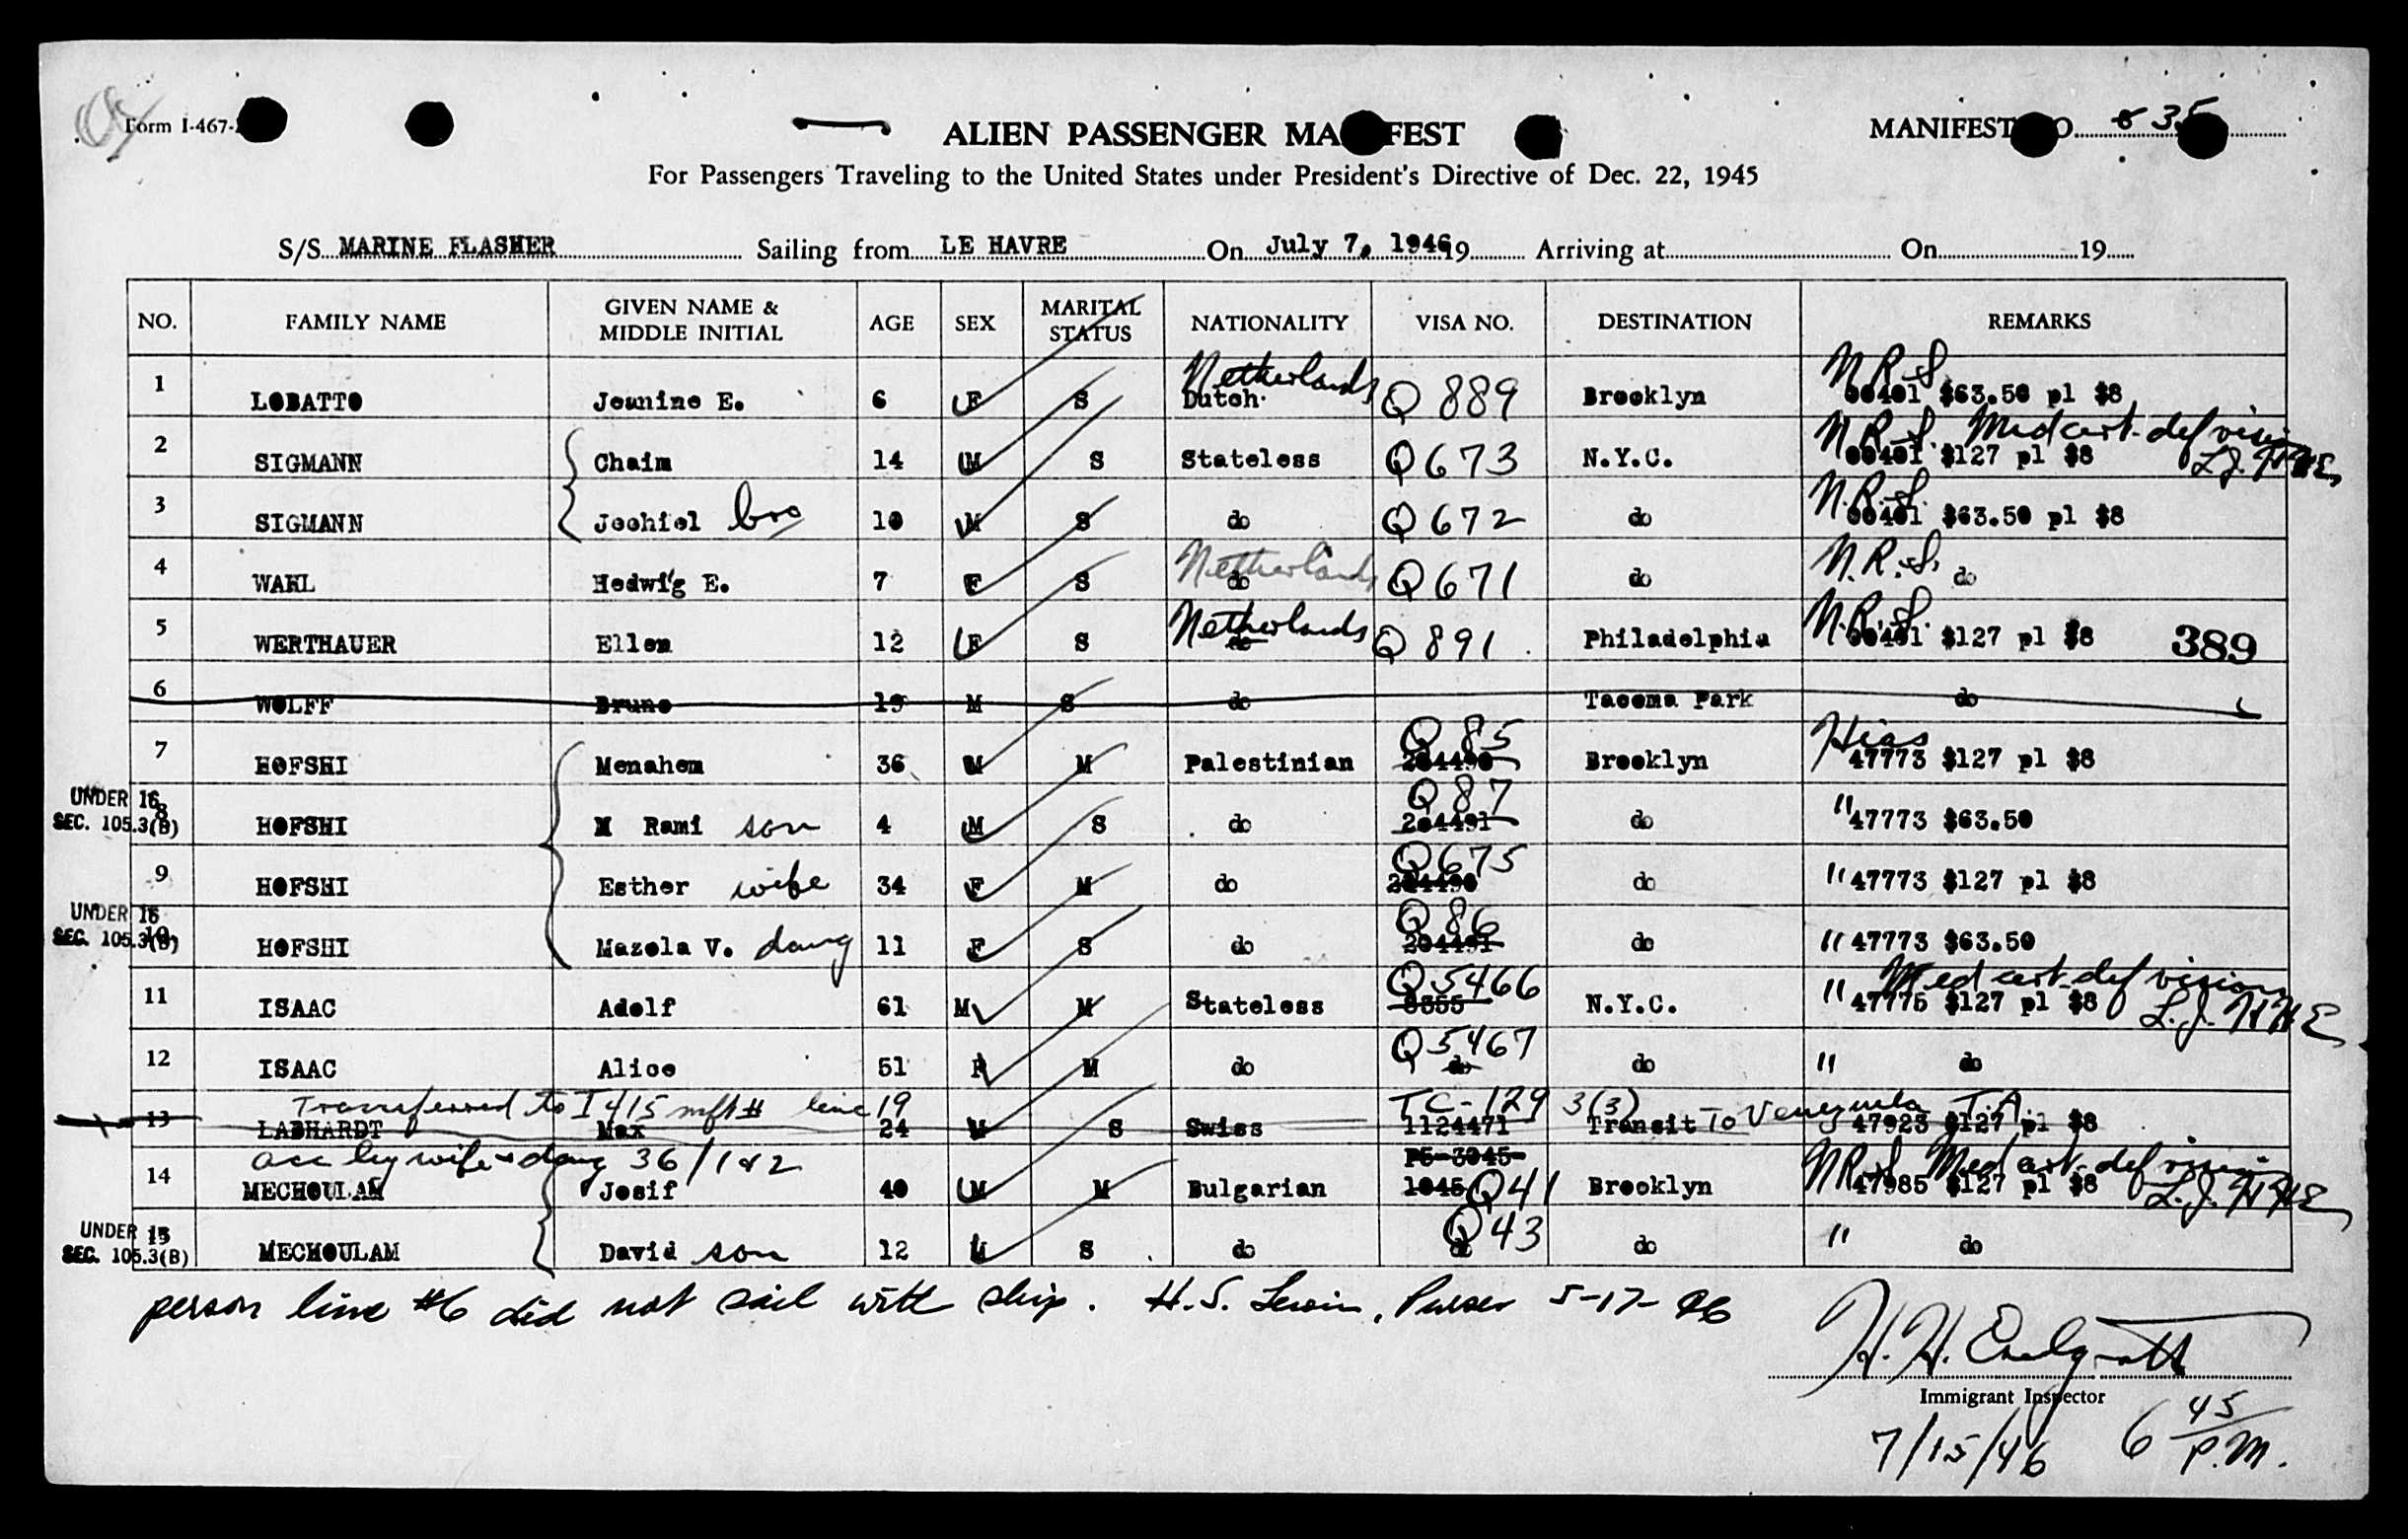 Form I-467-
ALIEN PASSENGER MA FEST
MANIFEST O. 35
For Passengers Traveling to the United States under President's Directive of Dec. 22, 1945
S/S MARINE FLASHER Sailing from LE HAVRE On July 7, 1946 19 Arriving at On 19
NO. FAMILY NAME GIVEN NAME & MIDDLE INITIAL AGE SEX MARITAL STATUS NATIONALITY VISA NO. DESTINATION REMARKS
1 LOBATTO Jeanine E. 6 F S Netherlands Dutch Q 889 Brooklyn N.R.S. 00401 $63.50 pl $8
2 SIGMANN Chaim 14 M S Stateless Q 673 N.Y.C. N.R.S. Med cert. def vision 00401 $127 pl $8 L.J. HHE
3 SIGMANN Jechiel bro 10 M S do Q 672 do N.R.S. 00401 $63.50 pl $8
4 WAHL Hedwig E. 7 F S Netherlands do Q 671 do N.R.S. do
5 WERTHAUER Ellen 12 F S Netherlands do Q 891 Philadelphia N.R.S. 00401 $127 pl $8 389
6 WOLFF Bruno 19 M S do Tacoma Park do
7 HOFSHI Menahem 36 M M Palestinian Q 85 204490 Brooklyn Hias 47773 $127 pl $8
UNDER 16 SEC. 105.3(B) 8 HOFSHI M Rami son 4 M S do Q 87 204491 do " 47773 $63.50
9 HOFSHI Esther wife 34 F M do Q 675 204490 do " 47773 $127 pl $8
UNDER 16 SEC. 105.3(B) 10 HOFSHI Mazela V. daug 11 F S do Q 86 204491 do " 47773 $63.50
11 ISAAC Adolf 61 M M Stateless Q 5466 N.Y.C. " Med cert. def vision 47775 $127 pl $8 L.J. HHE
12 ISAAC Alice 51 F M do Q 5467 do do " do
Transferred to I 415 mft # line 19 TC-129 3(3) T.A.
13 LABHARDT Max 24 M S Swiss 1124471 Transit To Venezuela 47923 $127 pl $8
acc by wife & daug 36/1&2
14 MECHOULAM Josif 40 M M Bulgarian P5-3045- 1045 Q41 Brooklyn NRS Med cert. def vision 47985 $127 pl $8 L.J. HHE
UNDER 16 SEC. 105.3(B) 15 MECHOULAM David son 12 M S do Q 43 do do " do
person line #6 did not sail with ship. H.S. Lewin, Purser 5-17-46
Immigrant Inspector
7/15/46 6 45 P.M.